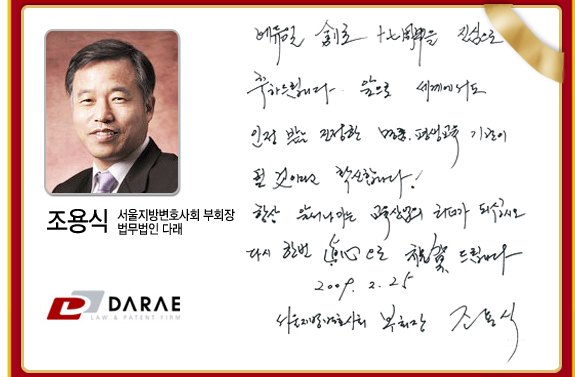 에듀윌 創立 十七周年을 진심으로
축하드립니다. 앞으로 세계에서도
인정 받는 진정한 명품 평생교육 기관이
될 것이라고 확신합니다!
항상 앞서나가는 교육산업의 리더가 되십시오
다시 한번 眞心으로 祝賀 드립니다
2009. 2. 25
서울지방변호사회 부회장 조용식
조용식 서울지방변호사회 부회장
법무법인 다래
DARAE
LAW & PATENT FIRM